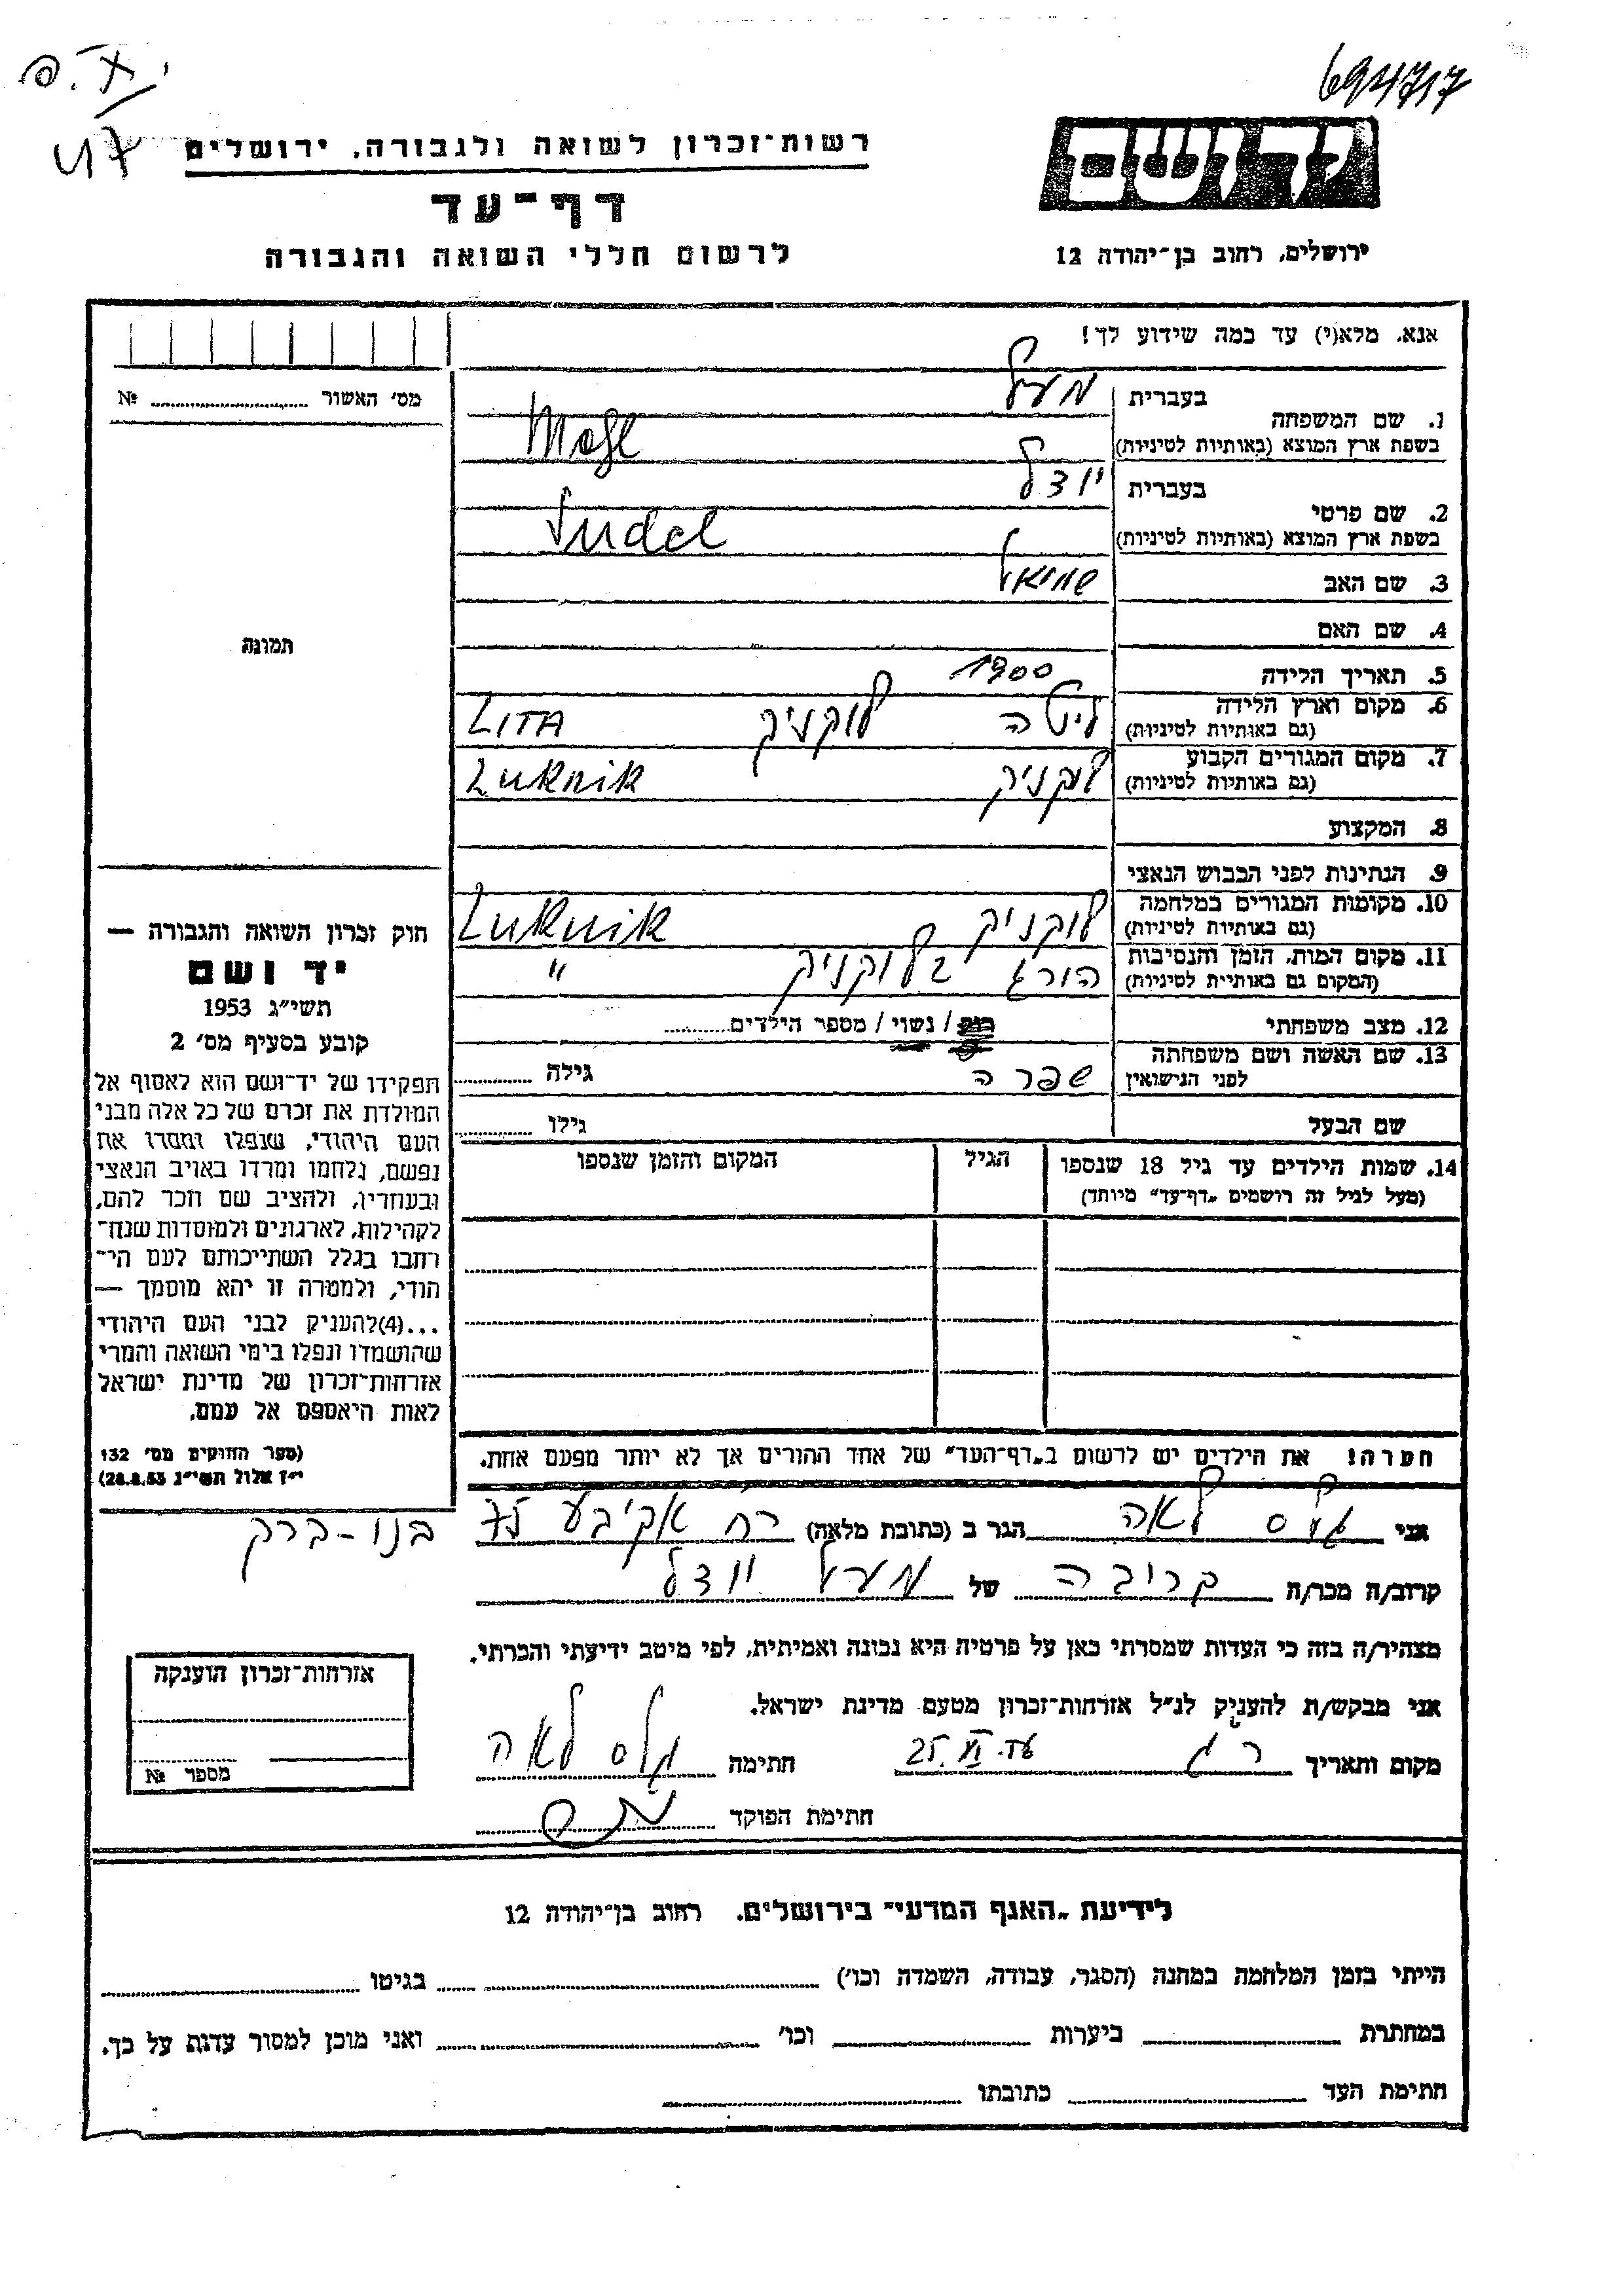 694717
פ.צ.י
47
רשות־זכרון לשואה ולגבורה, ירושלים
דף־עד
לרשום חללי השואה והגבורה
יד ושם
ירושלים, רחוב בן־יהודה 12
אנא, מלא(י) עד כמה שידוע לך!
מס׳ האשור № 
1. שם המשפחה בעברית מעל
בשפת ארץ המוצא (באותיות לטיניות)
2. שם פרטי בעברית יודל
בשפת ארץ המוצא (באותיות לטיניות) Judel
3. שם האב שמואל
4. שם האם
5. תאריך הלידה 1900
6. מקום וארץ הלידה (גם באותיות לטיניות) ליטה לוקניק LITA
7. מקום המגורים הקבוע (גם באותיות לטיניות) לוקניק Luknik
8. המקצוע
9. הנתינות לפני הכבוש הנאצי
10. מקומות המגורים במלחמה (גם באותיות לטיניות) לוקניק Luknik
11. מקום המות, הזמן והנסיבות (המקום גם באותיות לטיניות) הורג בלוקניק "
12. מצב משפחתי רוק / נשוי / מספר הילדים
13. שם האשה ושם משפחתה לפני הנישואין שפרה גילה
שם הבעל גילו
14. שמות הילדים עד גיל 18 שנספו הגיל המקום והזמן שנספו
(מעל לגיל זה רושמים „דף־עד” מיוחד)
הערה! את הילדים יש לרשום ב„דף־העד” של אחד ההורים אך לא יותר מפעם אחת.
תמונה
חוק זכרון השואה והגבורה —
יד ושם
תשי״ג 1953
קובע בסעיף מס׳ 2
תפקידו של יד־ושם הוא לאסוף אל
המולדת את זכרם של כל אלה מבני
העם היהודי, שנפלו ומסרו את
נפשם, נלחמו ומרדו באויב הנאצי
ובעוזריו, ולהציב שם וזכר להם,
לקהילות, לארגונים ולמוסדות שנח־
רבו בגלל השתייכותם לעם הי־
הודי, ולמטרה זו יהא מוסמך —
...(4)להעניק לבני העם היהודי
שהושמדו ונפלו בימי השואה והמרי
אזרחות־זכרון של מדינת ישראל
לאות היאספם אל עמם.
(ספר החוקים מס׳ 132
י״ז אלול תשי״ג 28.8.53)
אני לאה הגר ב (כתובת מלאה) רח עקיבא 75 בני-ברק
קרוב/ה מכר/ה קרובה של מעל יודל
מצהיר/ה בזה כי העדות שמסרתי כאן על פרטיה היא נכונה ואמיתית, לפי מיטב ידיעתי והכרתי.
אני מבקש/ת להעניק לנ״ל אזרחות־זכרון מטעם מדינת ישראל.
מקום ותאריך ר ג 25. חתימה לאה
חתימת הפוקד
אזרחות־זכרון הוענקה
מספר №
לידיעת „האגף המדעי” בירושלים, רחוב בן־יהודה 12
הייתי בזמן המלחמה במחנה (הסגר, עבודה, השמדה וכו׳) בגיטו
במחתרת ביערות וכו׳ ואני מוכן למסור עדות על כך.
חתימת העד כתובתו